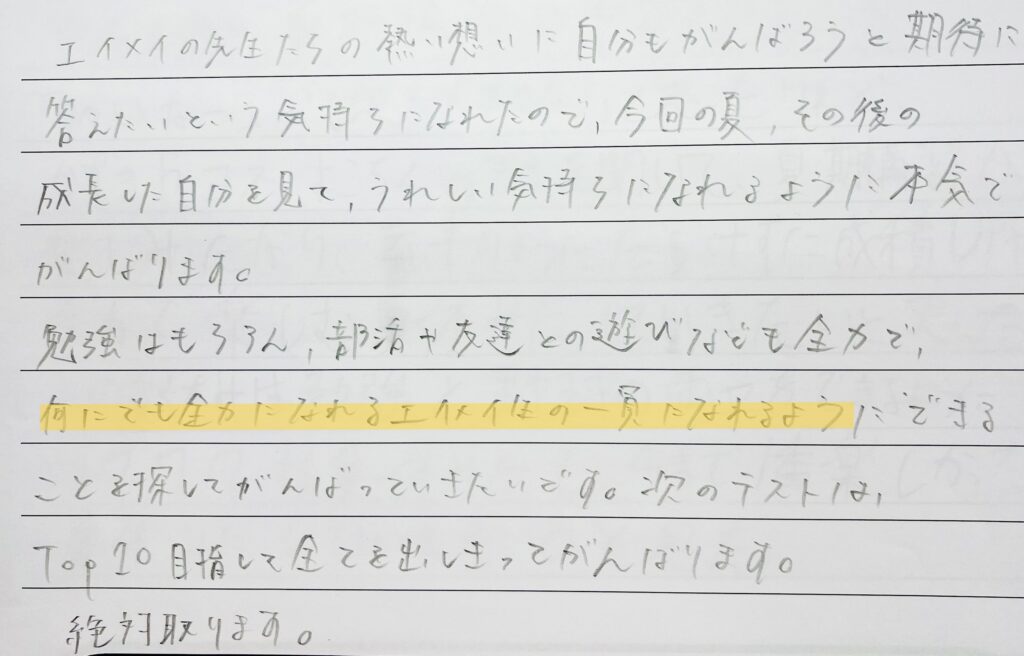 エイメイの先生たちの熱い想いに自分もがんばろうと期待に
答えたいという気持ちになれたので、今回の夏、その後の
成長した自分を見て、うれしい気持ちになれるように本気で
がんばります。
勉強はもちろん、部活や友達との遊びなども全力で、
何にでも全力になれるエイメイ生の一員になれるようにできる
ことを探してがんばっていきたいです。次のテストは、
Top10目指して全てを出しきってがんばります。
絶対取ります。